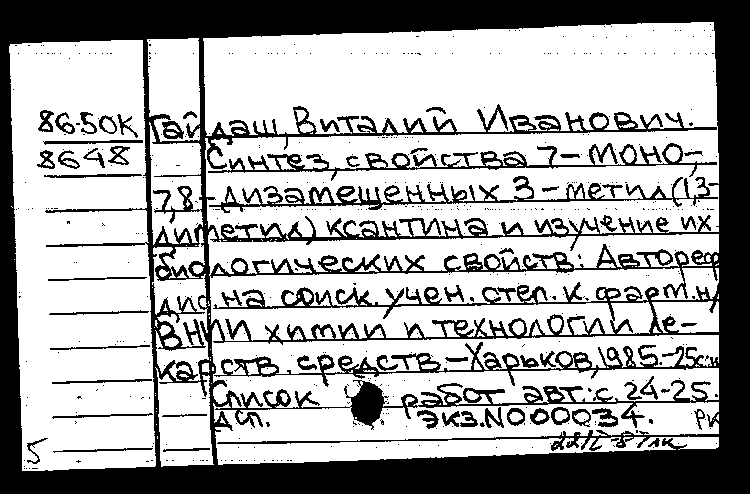 86-50К
8648
Гайдаш, Виталий Иванович.
Синтез, свойства 7-моно-,
7,8-дизамещенных 3-метил(1,3-
диметил) ксантина и изучение их
биологических свойств: Автореф
дис. на соиск. учен. степ. к. фарм. н/
ВНИИ химии и технологии ле-
карств. средств.-Харьков, 1985.-25с.
Список работ авт. с. 24-25.
Дсп. Экз. N000034. РК
5